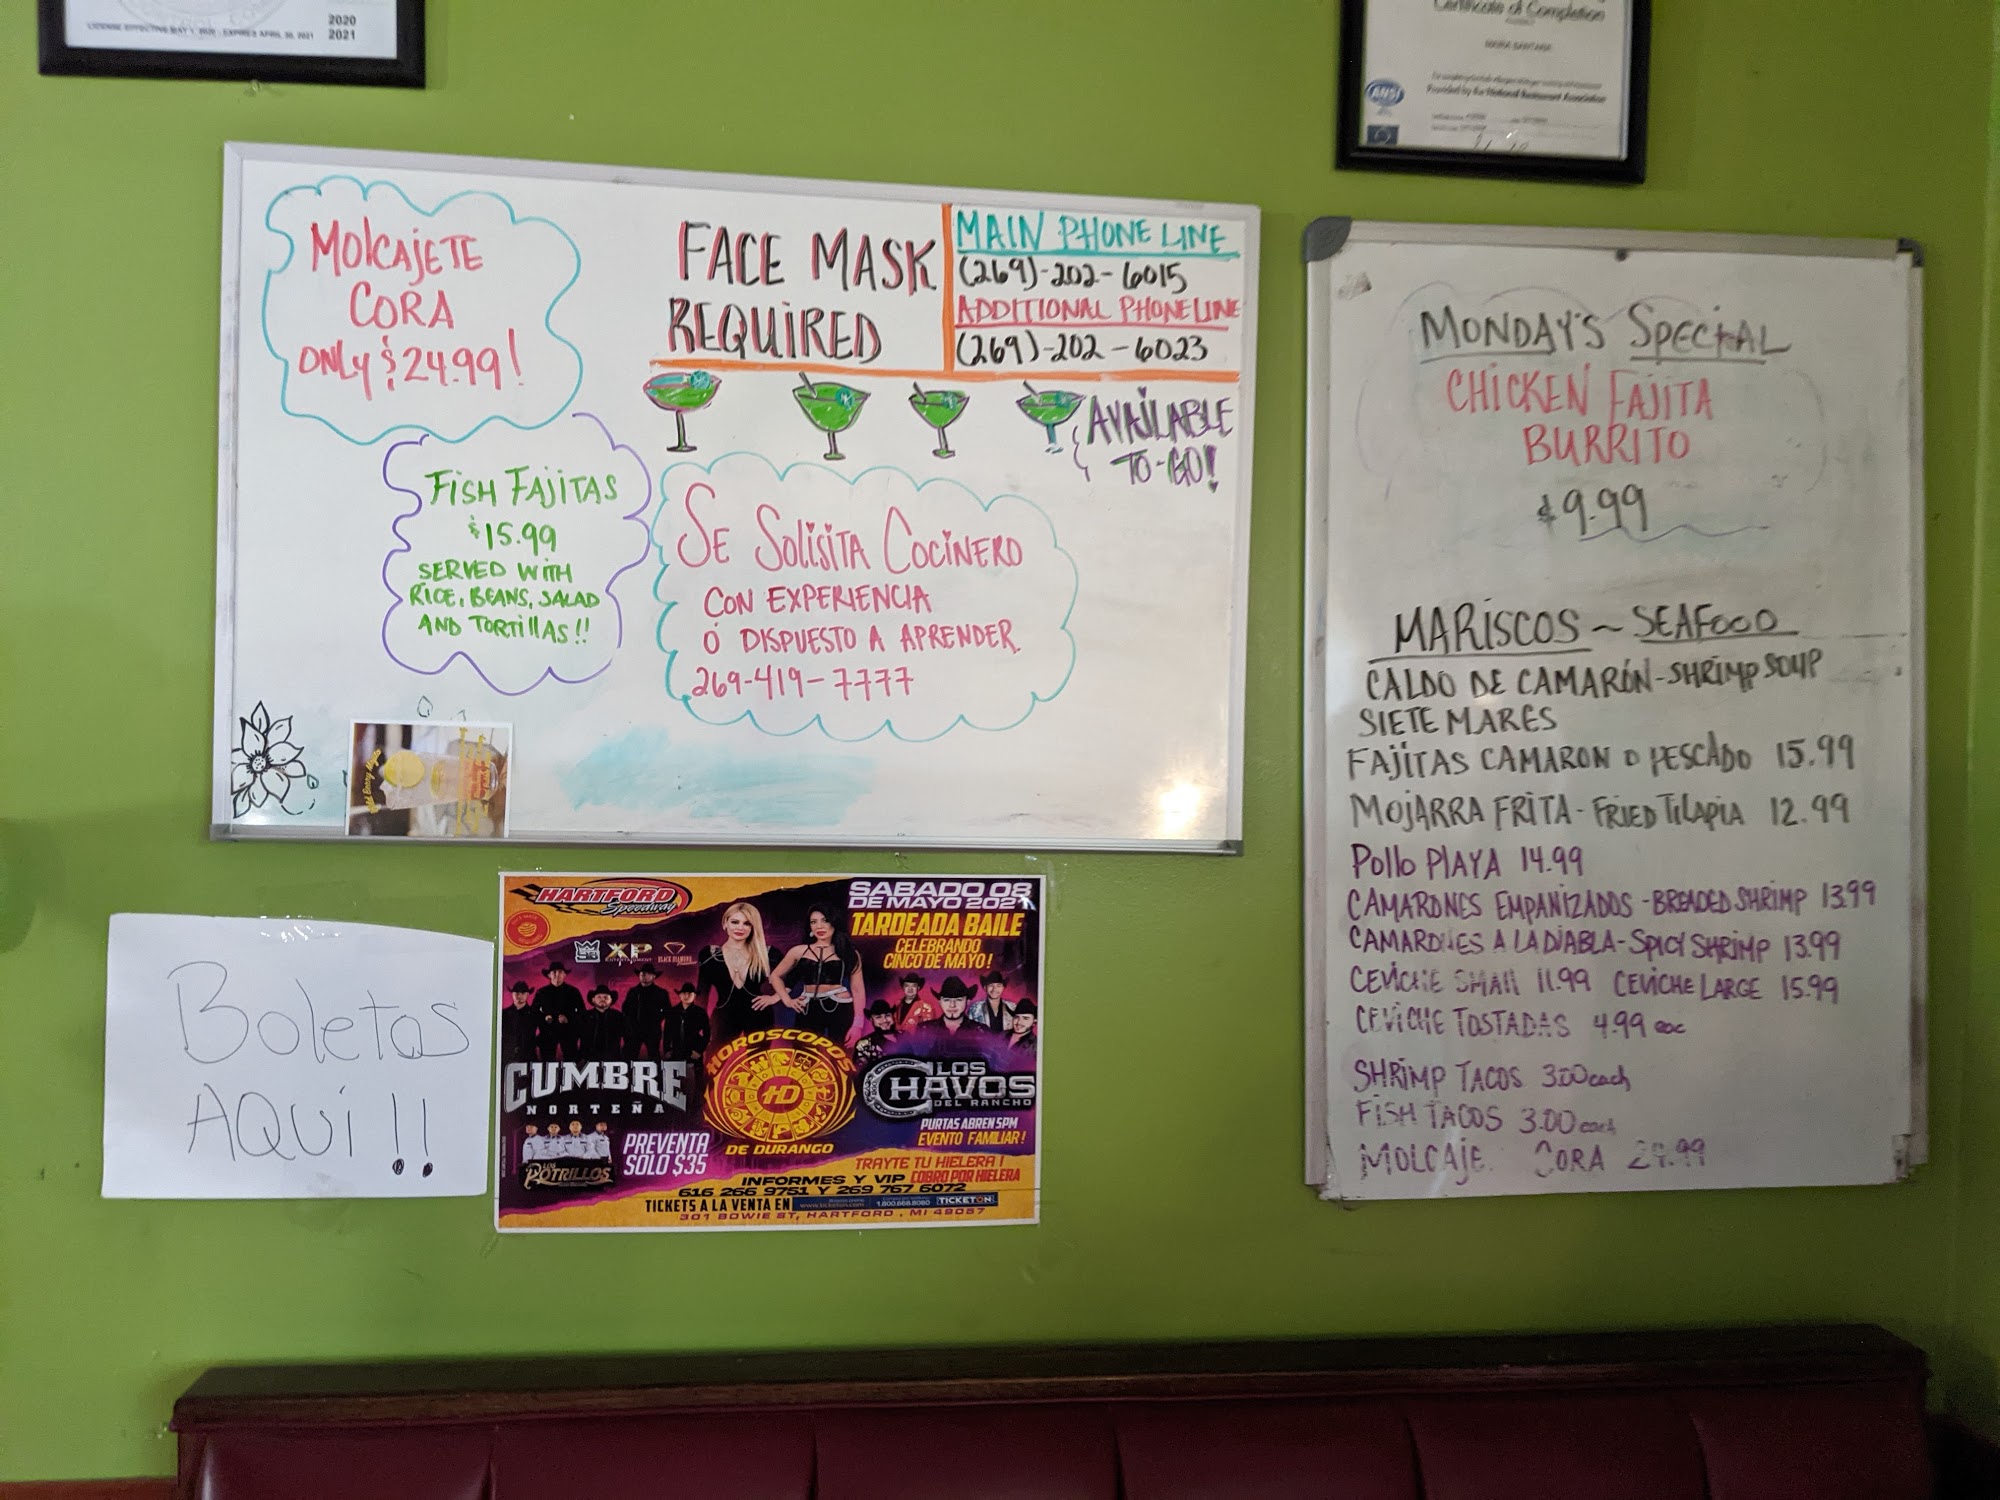 2020
LICENSE EFFECTIVE MAY 1, 2020 - EXPIRES APRIL 30, 2021 2021
Certificate of Completion
ANSI
Provided by the National Restaurant Association
MOLCAJETE
CORA
ONLY $24.99!
FACE MASK
REQUIRED
MAIN PHONE LINE
(269)-202-6015
ADDITIONAL PHONE LINE
(269)-202-6023
AVAILABLE
TO-GO!
FISH FAJITAS
$15.99
SERVED WITH
RICE, BEANS, SALAD
AND TORTILLAS!!
SE SOLISITA COCINERO
CON EXPERIENCIA
O DISPUESTO A APRENDER.
269-419-7777
MONDAY'S SPECIAL
CHICKEN FAJITA
BURRITO
$9.99
MARISCOS ~ SEAFOOD
CALDO DE CAMARÓN-SHRIMP SOUP
SIETE MARES
FAJITAS CAMARON O PESCADO 15.99
MOJARRA FRITA - FRIED TILAPIA 12.99
POLLO PLAYA 14.99
CAMARONES EMPANIZADOS - BREADED SHRIMP 13.99
CAMARONES A LA DIABLA - SPICY SHRIMP 13.99
CEVICHE SMALL 11.99 CEVICHE LARGE 15.99
CEVICHE TOSTADAS 4.99 eac
SHRIMP TACOS 3.00 each
FISH TACOS 3.00 each
MOLCAJE CORA 24.99
Boletos
AQUI!!
HARTFORD
Speedway
SABADO 08
DE MAYO 2021
TARDEADA BAILE
CELEBRANDO
CINCO DE MAYO!
XP
ENTERTAINMENT
BLACK DIAMOND
CUMBRE
NORTEÑA
HOROSCOPOS
HD
DE DURANGO
LOS
CHAVOS
DEL RANCHO
PURTAS ABREN 5PM
EVENTO FAMILIAR!
LOS
POTRILLOS
PREVENTA
SOLO $35
TRAYTE TU HIELERA!
COBRO POR HIELERA
INFORMES Y VIP
616 266 9751 Y 269 767 6072
TICKETS A LA VENTA EN www.ticketon.com 1.800.668.8080 TICKETON
301 BOWIE ST, HARTFORD, MI 49057